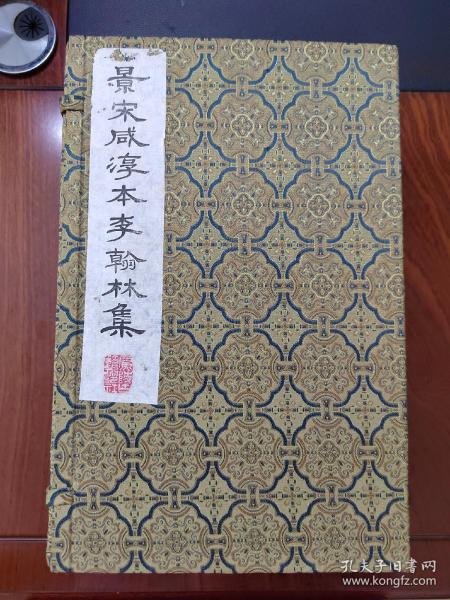 景宋咸淳本李翰林集
孔夫子旧书网
www.kongfz.com